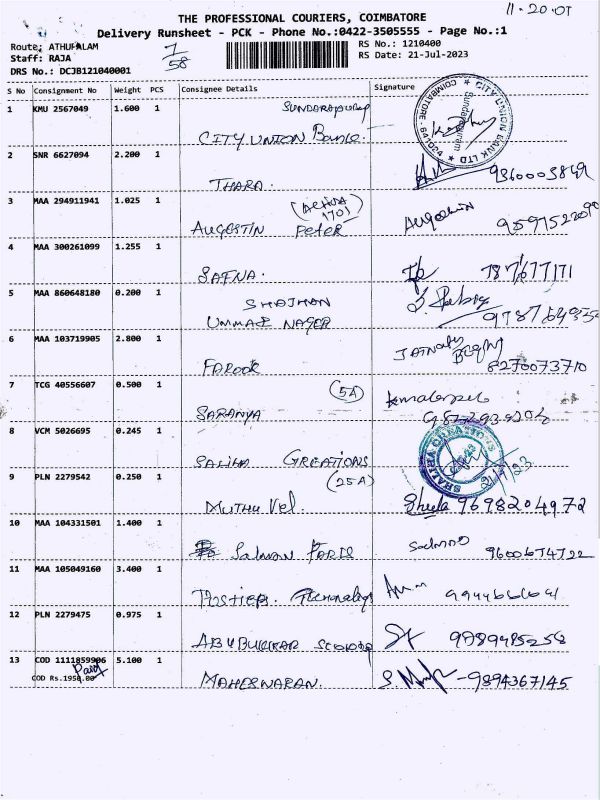 11-20.01
THE PROFESSIONAL COURIERS, COIMBATORE
Delivery Runsheet - PCK - Phone No.:0422-3505555 - Page No.:1
Route: ATHUPALAM
Staff: RAJA
DRS No.: DCJB121040001
1/58
RS No.: 1210400
RS Date: 21-Jul-2023
S No Consignment No Weight PCS Consignee Details Signature
1 KMU 2567049 1.600 1
CITY UNION Bank.
CITY UNION BANK LTD
COIMBATORE
Sundarapuram
2 SNR 6627094 2.200 1
THARA.
3 MAA 294911941 1.025 1
AUGOSTIN Peter
4 MAA 300261099 1.255 1
SAFNA.
5 MAA 860648180 0.200 1
SHAJHAN
UMMAR NAGER
6 MAA 103719905 2.800 1
FAROOK
8270073710
7 TCG 40556607 0.500 1
(5A)
SARANYA
8 VCM 5026695 0.245 1
SALIHA CREATIONS
9 PLN 2279542 0.250 1
(25A)
MUTHU Vel.
Sheela 9698204972
10 MAA 104331501 1.400 1
Salman FARIS
9600674722
11 MAA 105049160 3.400 1
12 PLN 2279475 0.975 1
ABUBUKKAR
9789485258
13 COD 1111859906 5.100 1
COD Rs.1950.00
Paid
MAHESWARAN.
-9894367145